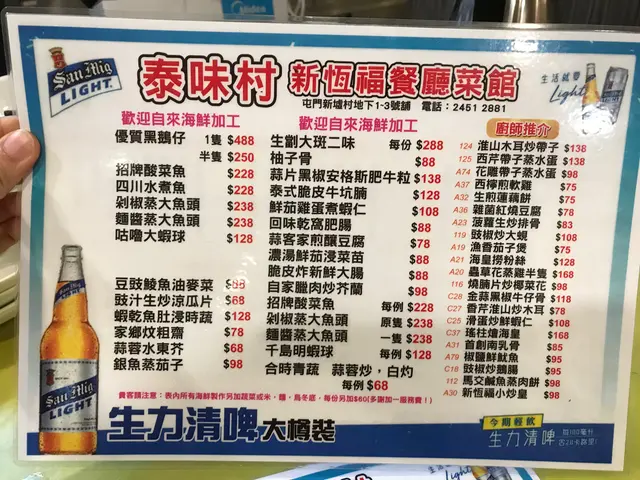 San Mig
LIGHT
泰味村 新恆福餐廳菜館
屯門新墟村地下1-3號舖 電話：2451 2881
生活就要
Light
歡迎自來海鮮加工
優質黑鵝仔 1隻 $488
半隻 $250
招牌酸菜魚 $228
四川水煮魚 $228
剁椒蒸大魚頭 $238
麵醬蒸大魚頭 $238
咕嚕大蝦球 $128
豆豉鯪魚油麥菜 $88
豉汁生炒涼瓜片 $68
蝦乾魚肚浸時蔬 $128
家鄉炆粗齋 $78
蒜蓉水東芥 $68
銀魚蒸茄子 $98
歡迎自來海鮮加工
生劏大斑二味 每份 $288
柚子骨 $88
蒜片黑椒安格斯肥牛粒 $138
泰式脆皮牛坑腩 $128
鮮茄雞蛋煮蝦仁 $108
回味乾窩肥腸 $88
蒜客家煎釀豆腐 $78
濃湯鮮茄浸菜苗 $88
脆皮炸新鮮大腸 $88
自家臘肉炒芥蘭 $98
招牌酸菜魚 每例 $228
剁椒蒸大魚頭 原隻 $238
麵醬蒸大魚頭 一隻 $238
千島明蝦球 每例 $128
合時青蔬 蒜蓉炒，白灼
每例 $68
廚師推介
124 淮山木耳炒帶子 $138
125 西芹帶子蒸水蛋 $138
A74 花雕帶子蒸水蛋 $98
A37 西檸煎軟雞 $75
A32 生煎蓮藕餅 $75
A36 雜菌紅燒豆腐 $78
A23 菠蘿生炒排骨 $83
119 豉椒炒大蜆 $108
A19 漁香茄子煲 $75
A21 海皇撈粉絲 $128
A20 蟲草花蒸雞半隻 $168
116 燒腩片炒椰菜花 $98
C28 金蒜黑椒牛仔骨 $118
C27 香芹淮山炒木耳 $78
C25 滑蛋炒鮮蝦仁 $108
C37 瑤柱燴海皇 $168
A31 首創南乳骨 $85
A79 椒鹽鮮魷魚 $95
C18 豉椒炒鵝腸 $95
112 馬友鹹魚蒸肉餅 $98
A30 新恆福小炒皇 $98
貴客請注意：表內所有海鮮製作另加蔬菜或米，麵，烏冬底，每份另加$60(多謝加一服務費！)
San Mig
LIGHT
生力清啤大樽裝
今期輕飲
生力清啤